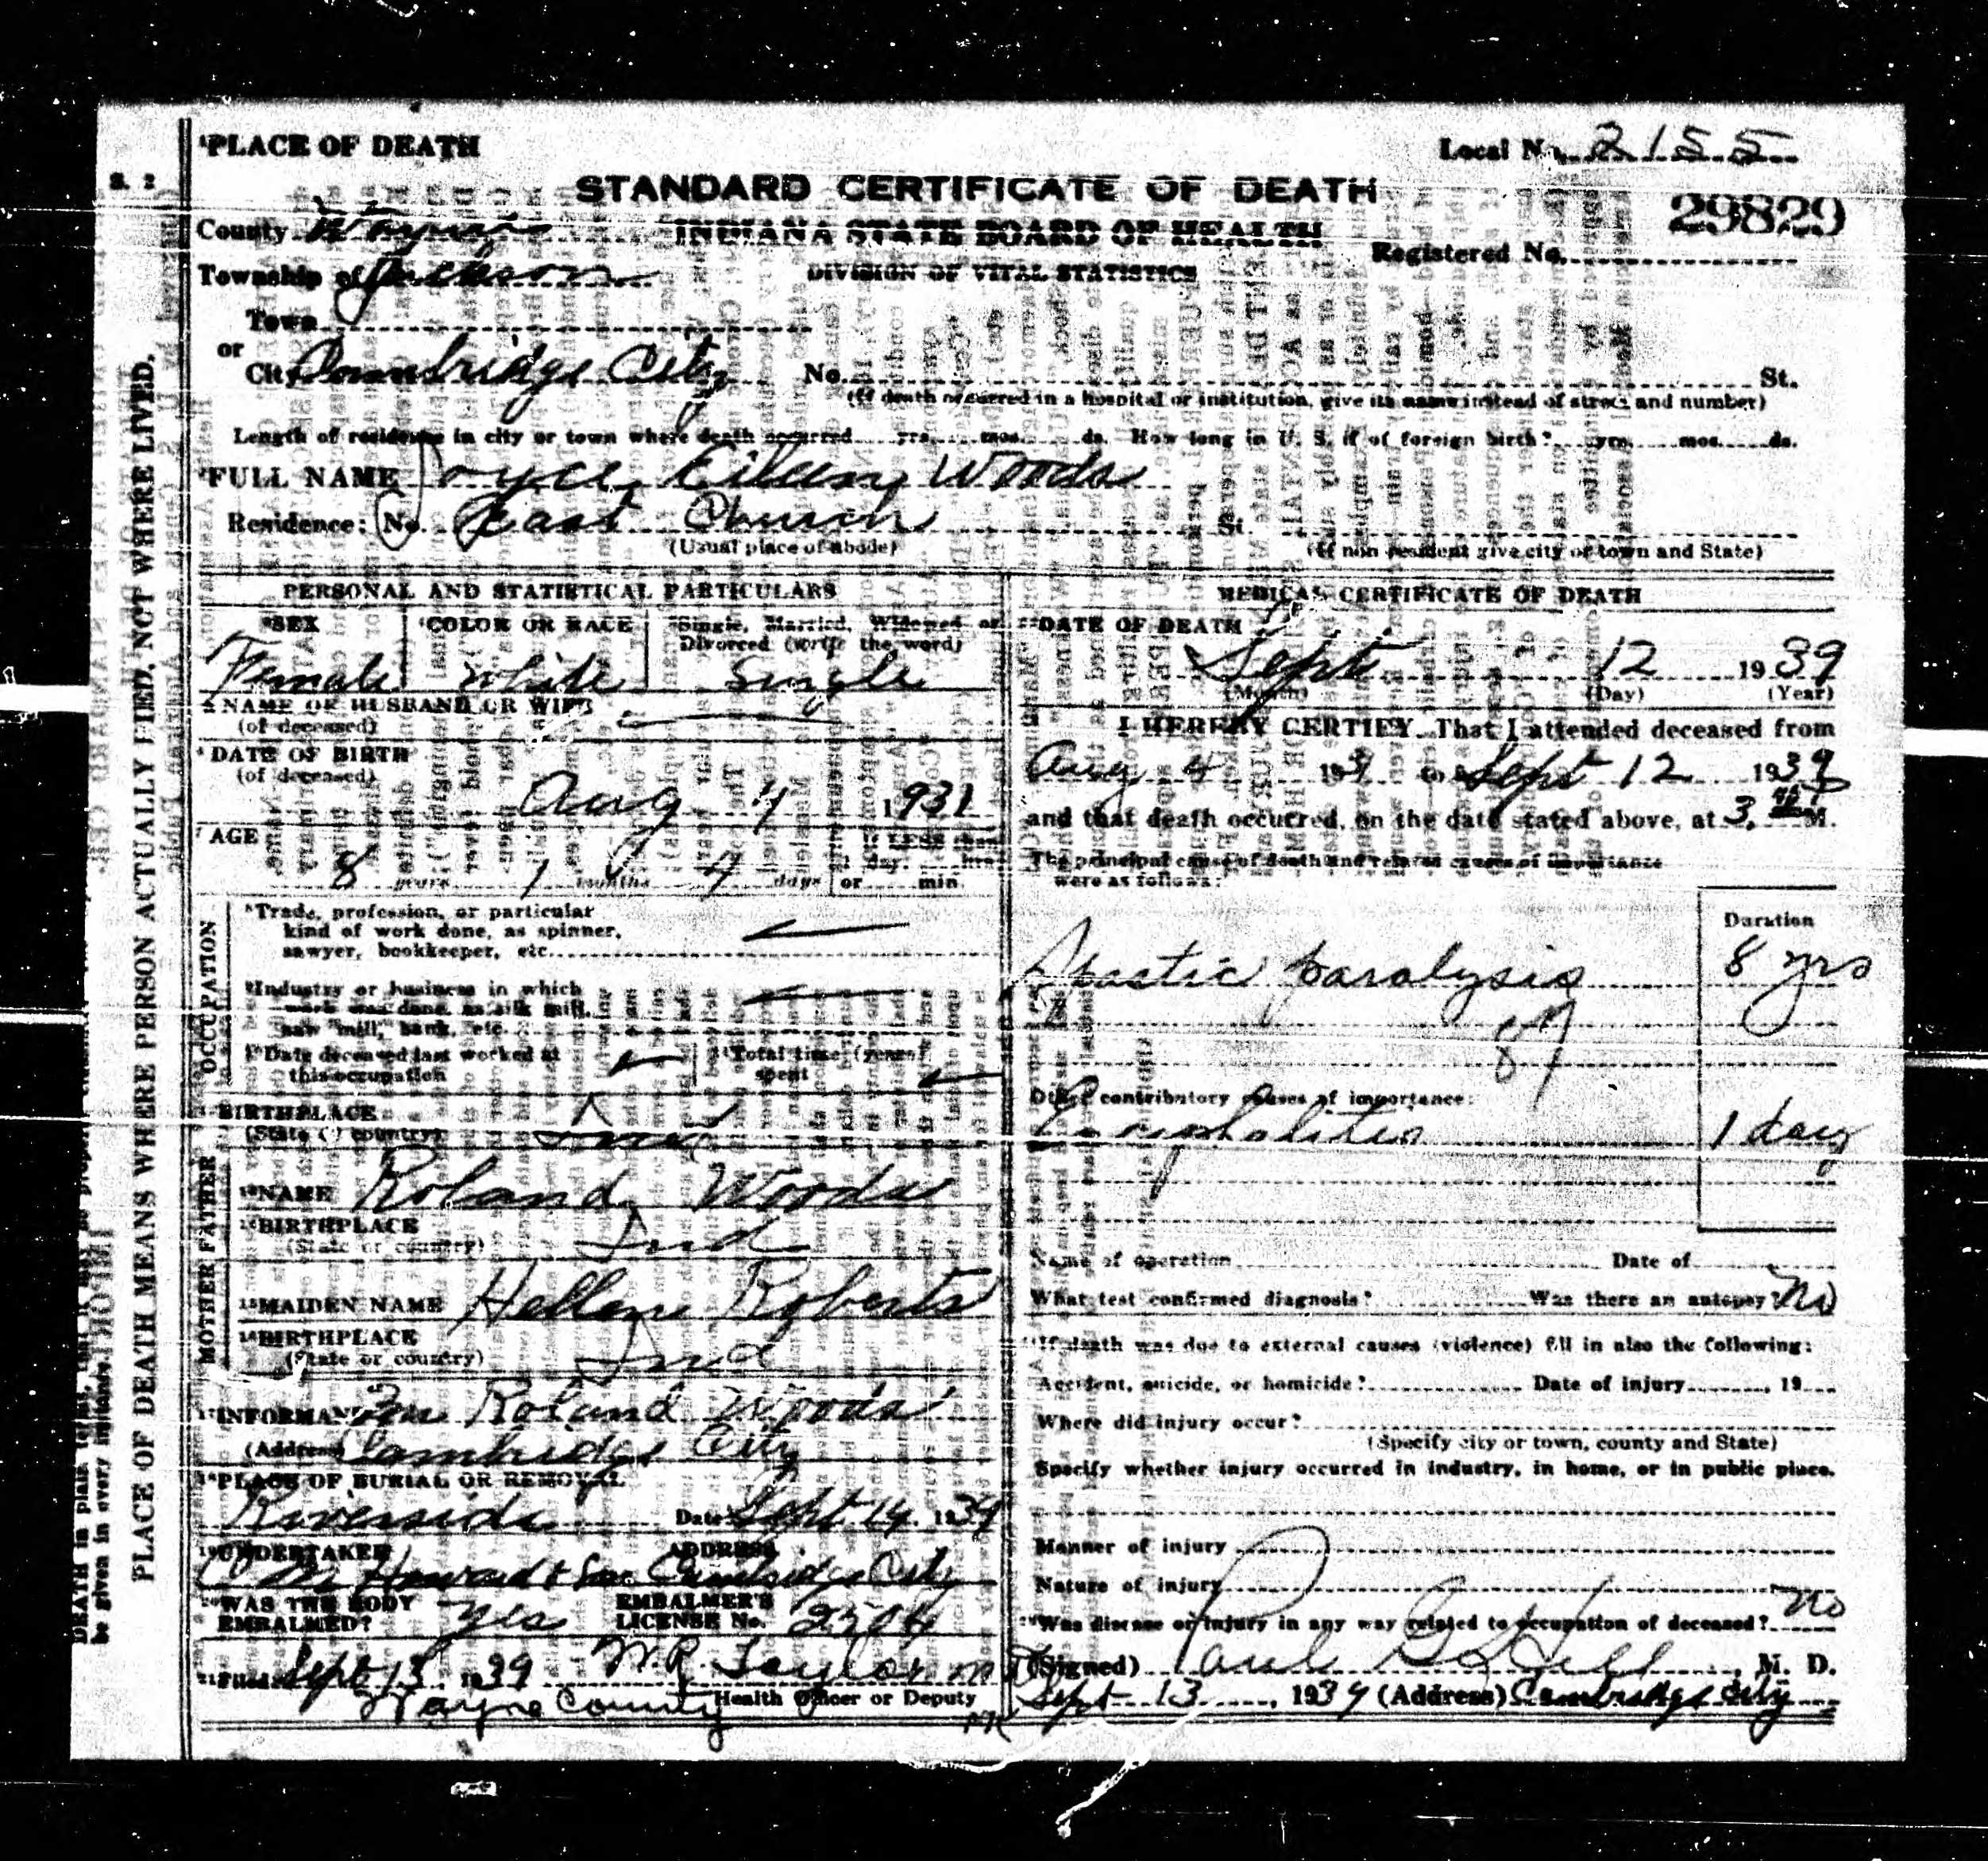 PLACE OF DEATH
Local No. 2155
STANDARD CERTIFICATE OF DEATH
29829
County Wayne
INDIANA STATE BOARD OF HEALTH
Registered No.
Township of Jackson
DIVISION OF VITAL STATISTICS
Town
or
City Cambridge City No. St.
(If death occurred in a hospital or institution, give its name instead of street and number)
Length of residence in city or town where death occurred yrs. mos. ds. How long in U. S. if of foreign birth? yrs. mos. ds.
FULL NAME Joyce Eileen Woods
Residence: No. East Church St.
(Usual place of abode) (If non resident give city or town and State)
PERSONAL AND STATISTICAL PARTICULARS
SEX COLOR OR RACE Single, Married, Widowed or Divorced (write the word)
Female White Single
NAME OF HUSBAND OR WIFE
(of deceased)
DATE OF BIRTH
(of deceased)
Aug 4 1931
AGE If LESS than
8 years 1 months days 1 day, hrs.
or min.
OCCUPATION
Trade, profession, or particular
kind of work done, as spinner,
sawyer, bookkeeper, etc.
Industry or business in which
work was done, as silk mill,
saw mill, bank, etc.
Date deceased last worked at
this occupation
Total time (years)
spent
BIRTHPLACE
(State or country) Ind
FATHER
NAME Roland Woods
BIRTHPLACE
(State or country) Ind
MOTHER
MAIDEN NAME Hellene Roberts
BIRTHPLACE
(State or country) Ind
INFORMANT Roland Woods
(Address) Cambridge City
PLACE OF BURIAL OR REMOVAL
Riverside Date Sept 14 1939
UNDERTAKER ADDRESS
Howard & Son Cambridge City
WAS THE BODY
EMBALMED? Yes
EMBALMER'S
LICENSE No. 2504
Filed Sept 13, 1939 W.R. Taylor M D
Wayne County Health Officer or Deputy
MEDICAL CERTIFICATE OF DEATH
DATE OF DEATH
Sept 12 1939
(Month) (Day) (Year)
I HEREBY CERTIFY, That I attended deceased from
Aug 4 193 to Sept 12 1939
and that death occurred, on the date stated above, at 3 M.
The principal cause of death and related causes of importance
were as follows:
Duration
Spastic paralysis 8 yrs
Other contributory causes of importance:
Encephalitis 1 day
Name of operation Date of
What test confirmed diagnosis? Was there an autopsy? No
If death was due to external causes (violence) fill in also the following:
Accident, suicide, or homicide? Date of injury, 19
Where did injury occur?
(Specify city or town, county and State)
Specify whether injury occurred in industry, in home, or in public place.
Manner of injury
Nature of injury
Was disease or injury in any way related to occupation of deceased? No
(Signed) Paul M. D.
Sept 13, 1939 (Address) Cambridge City
PLACE OF DEATH MEANS WHERE PERSON ACTUALLY DIED, NOT WHERE LIVED.
DEATH in plain terms, that it may be
be given in every instance.